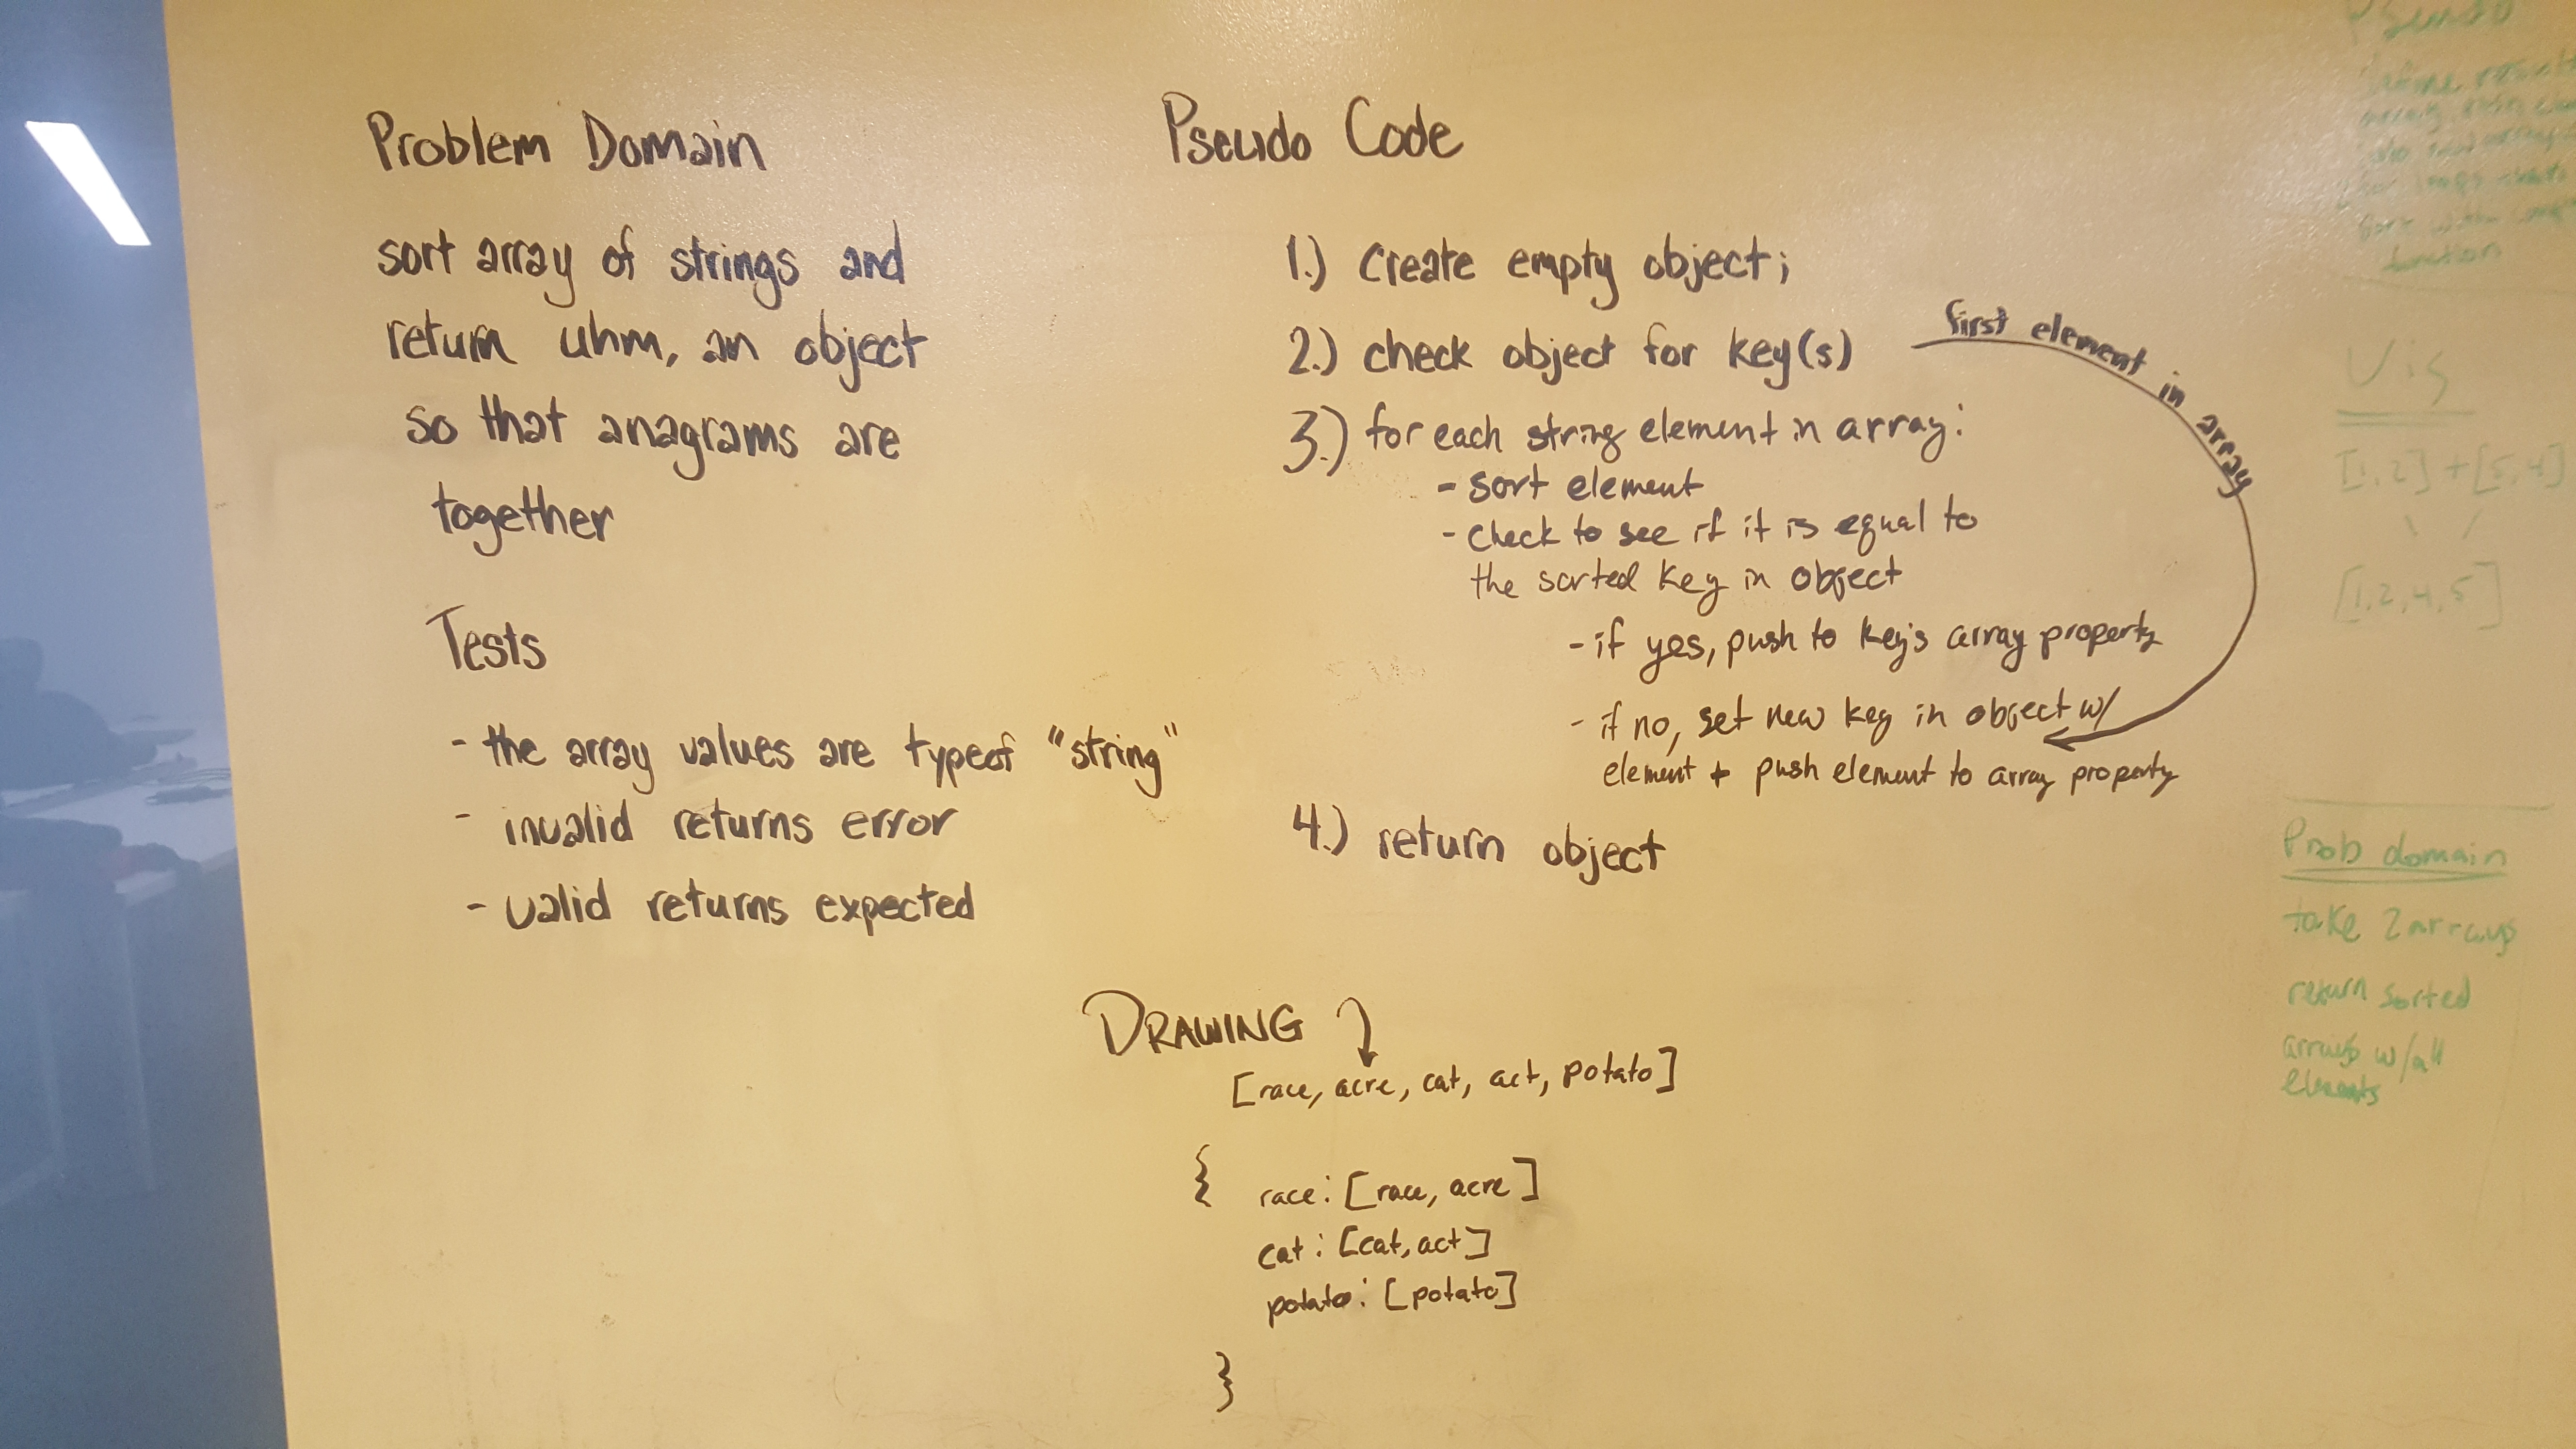 Problem Domain
sort array of strings and
return uhm, an object
so that anagrams are
together
Tests
- the array values are typeof "string"
- invalid returns error
- valid returns expected
Pseudo Code
1.) Create empty object;
2.) check object for key(s)
first element in array
3.) for each string element in array:
- sort element
- check to see if it is equal to
the sorted key in object
- if yes, push to key's array property
- if no, set new key in object w/
element + push element to array property
4.) return object
DRAWING
[race, acre, cat, act, potato]
{ race: [race, acre]
cat: [cat, act]
potato: [potato]
}
Pseudo
define result
function
Vis
[1,2] + [5,4]
\ /
[1,2,4,5]
Prob domain
take 2 arrays
return sorted
arrays w/all
elements